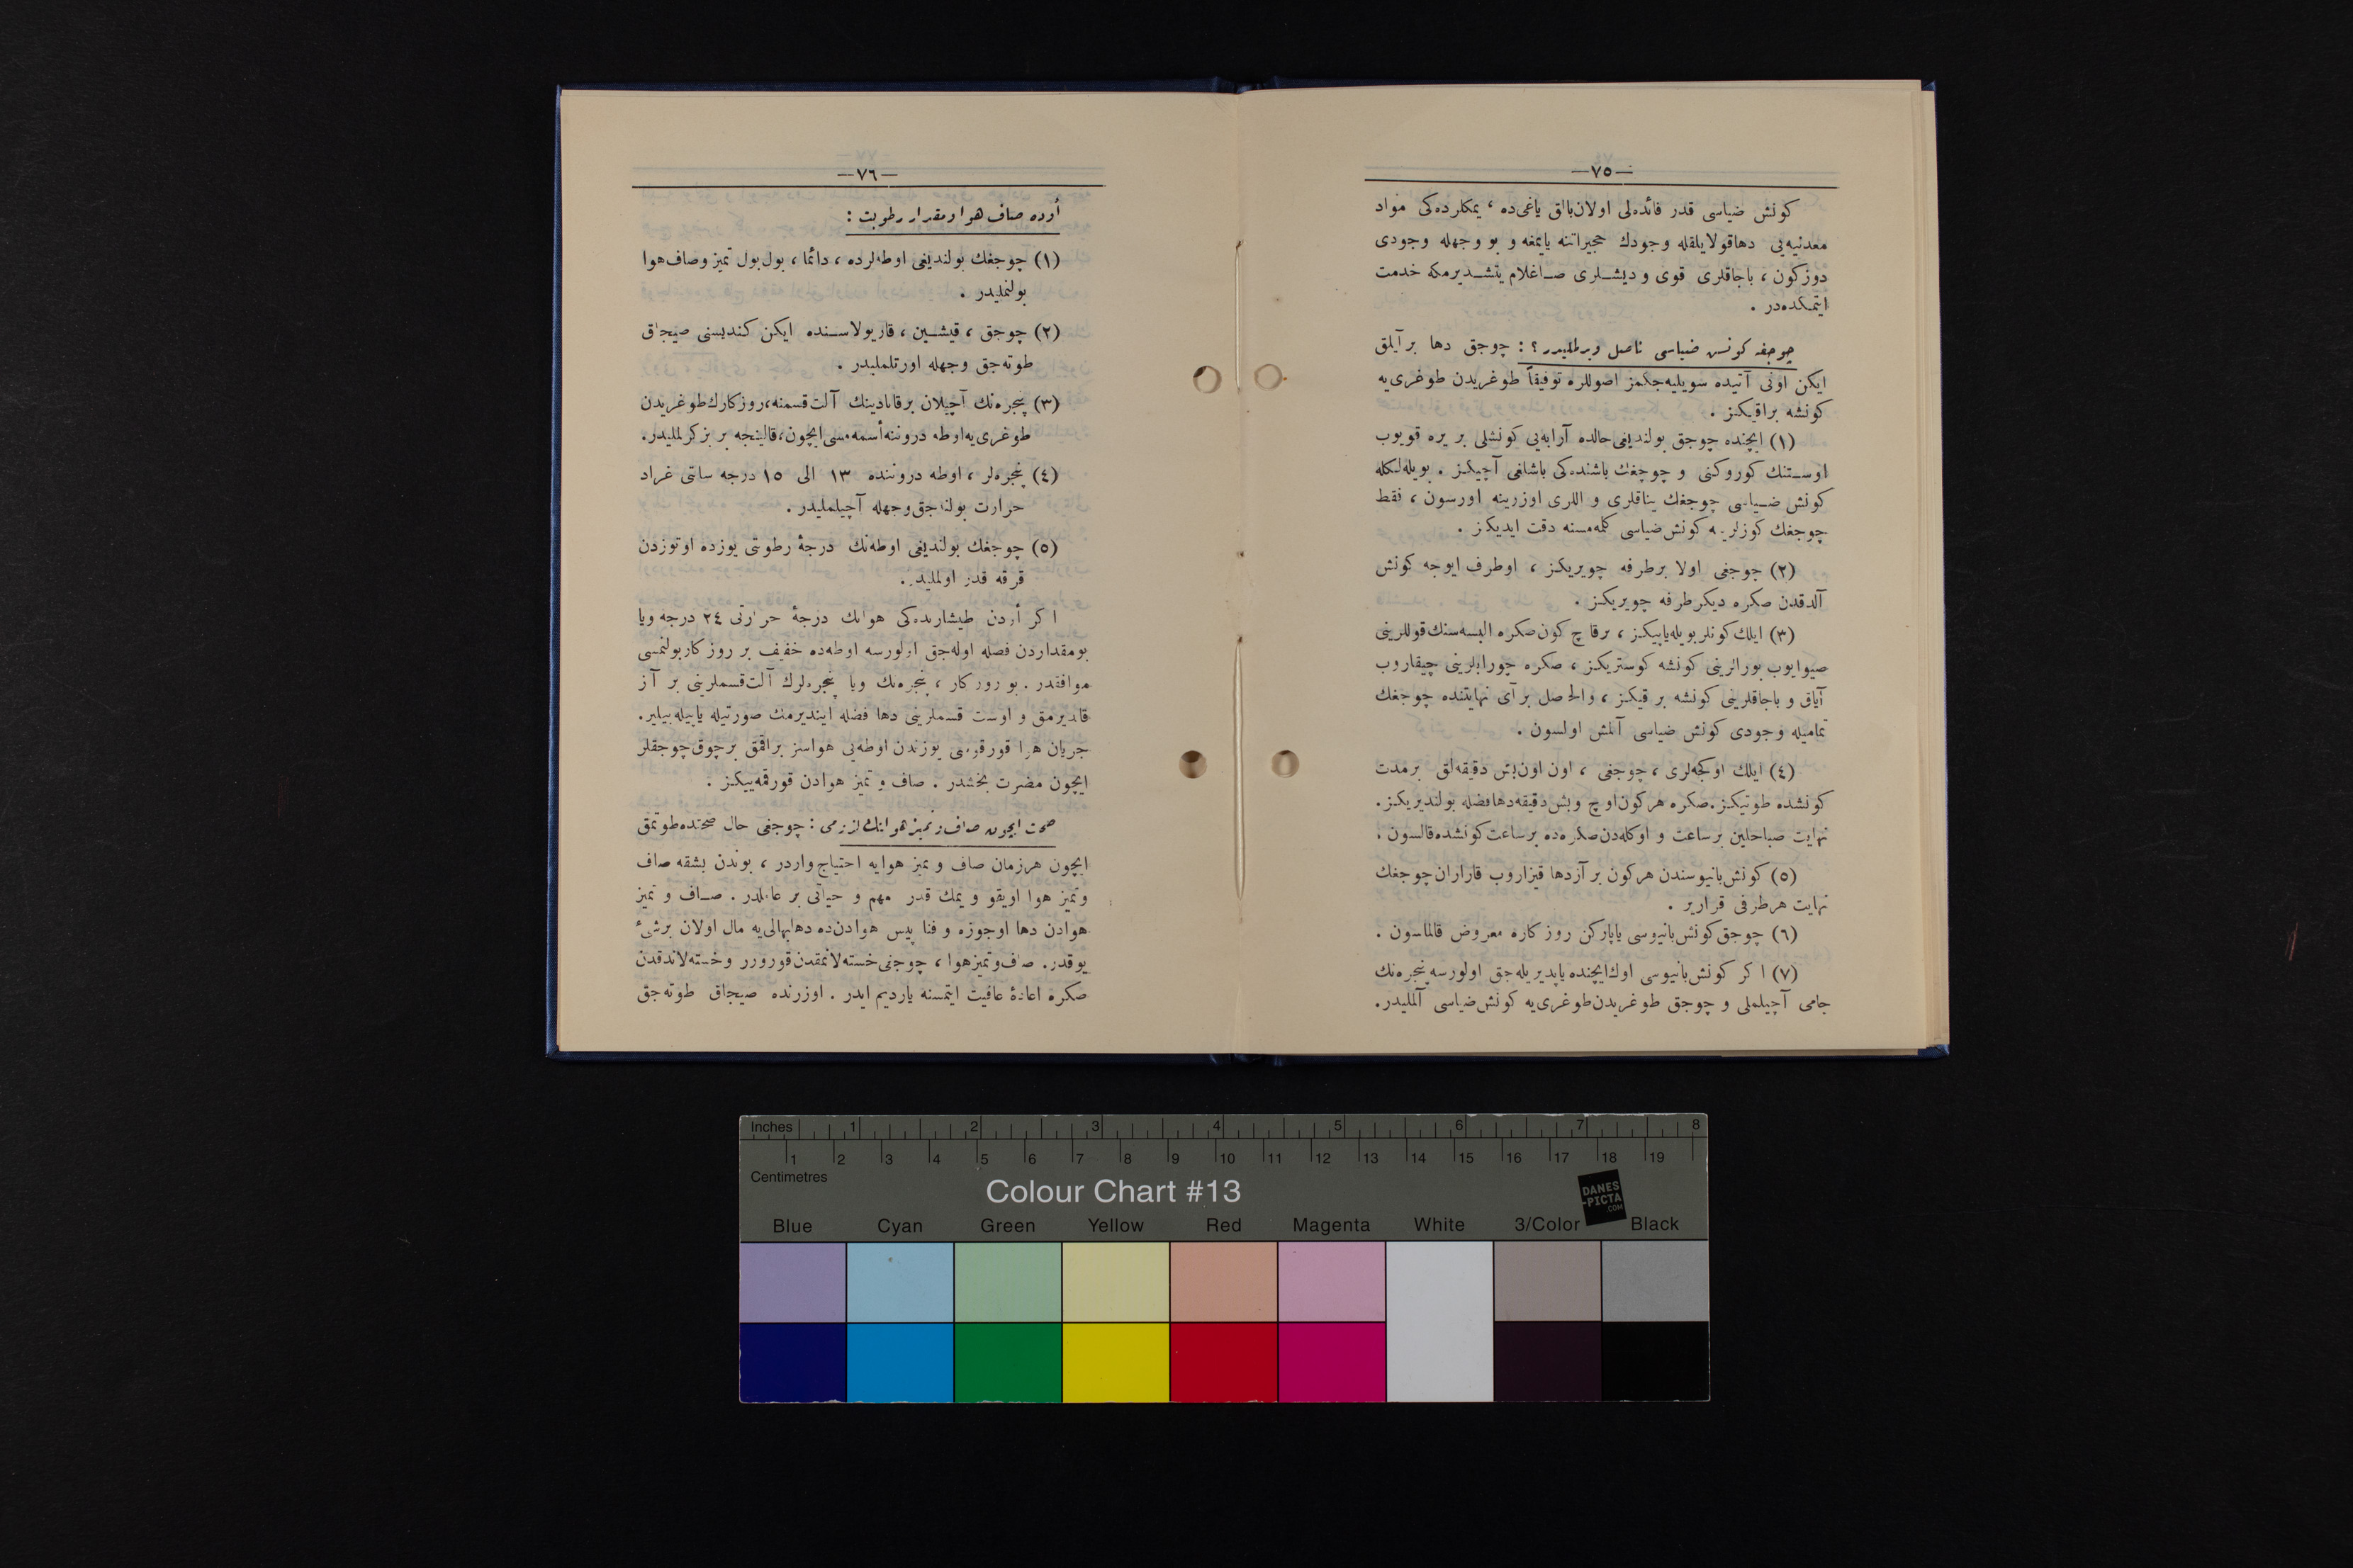 —٧٥—
كونش ضیاسی قدر فائده‌لی اولان بالق یاغی ده ، یمكلرده‌كی مواد
معدنیه‌یی دها قولایلقله وجودك حجیراتنه یایمغه و بو وجهله وجودی
دوزكون ، باجاقلری قوی و دیشلری صاغلام یتشدیرمكه خدمت
ایتمكده‌در .
چوجغه كونش ضیاسی ناصل ویرملیدر ؟ : چوجق دها بر آیلق
ایكن اونی آتیده سویلیه‌جكمز اصوللره توفیقاً طوغریدن طوغری‌یه
كونشه براقیكز .
(١) ایچنده چوجق بولندیغی حالده آرابه‌یی كونشلی بر یره قویوب
اوستنك كوروكنی و چوجغك باشنده‌كی باشلغی آچیكز . بویله‌لكله
كونش ضیاسی چوجغك یناقلری و اللری اوزرینه اورسون ، فقط
چوجغك كوزلرینه كونش ضیاسی كلمه‌مسنه دقت ایدیكز .
(٢) چوجغی اولا بر طرفه چویریكز ، اوطرف ایوجه كونش
آلدقدن صكره دیكر طرفه چویریكز .
(٣) ایلك كونلر بویله یاپیكز ، برقاچ كون صكره البسه‌سنك قوللرینی
صیوایوب بورالرینی كونشه كوستریكز ، صكره چورابلرینی چیقاروب
آیاق و باجاقلرینی كونشه براقیكز ، والحاصل بر آی نهایتنده چوجغك
تمامیله وجودی كونش ضیاسی آلمش اولسون .
(٤) ایلك اوكجه‌لری ، چوجغی ، اون اون‌بش دقیقه‌لق بر مدت
كونشده طوتیكز . صكره هركون اوچ وبش دقیقه دها فضله بولندیریكز .
نهایت صباحلین بر ساعت و اوكله‌دن صكره ده بر ساعت كونشده قالسون .
(٥) كونش بانیوسندن هركون بر آز دها قیزاروب قاراران چوجغك
نهایت هر طرفی قراریر .
(٦) چوجق كونش بانیوسی یاپاركن روزكاره معروض قالماسون .
(٧) اكر كونش بانیوسی اوك ایچنده یاپدیریله‌جق اولورسه پنجره‌نك
جامی آچیلملی و چوجق طوغریدن طوغری‌یه كونش ضیاسی آلملیدر .
—٧٦—
أوده صاف هوا و مقدار رطوبت :
(١) چوجغك بولندیغی اوطه‌لرده ، دائما ، بول بول تمیز وصاف هوا
بولنملیدر .
(٢) چوجق ، قیشین ، قاریولاسنده ایكن كندیسنی صیجاق
طوته‌جق وجهله اورتلملیدر .
(٣) پنجره‌نك آچیلان بر قانادینك آلت قسمنه ، روزكارك طوغریدن
طوغری‌یه اوطه دروننه أسمه‌مسی ایچون ، قالینجه بر بز كرلملیدر .
(٤) پنجره‌لر ، اوطه دروننده ١٣ الی ١٥ درجه سانتی غراد
حرارت بولنه‌جق وجهله آچیلملیدر .
(٥) چوجغك بولندیغی اوطه‌نك درجهٔ رطوبتی یوزده اوتوزدن
قرقه قدر اولملیدر .
اكر أودن طیشاریده‌كی هوانك درجهٔ حرارتی ٢٤ درجه ویا
بومقداردن فضله اوله‌جق اولورسه اوطه‌ده خفیف بر روزكار بولنمسی
موافقدر . بو روزكار ، پنجره‌نك ویا پنجره‌لرك آلت قسملرینی بر آز
قالدیرمق و اوست قسملرینی دها فضله ایندیرمك صورتیله یاپیله‌بیلیر .
جریان هوا قورقوسی یوزندن اوطه‌یی هواسز براقمق بر چوق چوجقلر
ایچون مضرت بخشدر . صاف و تمیز هوادن قورقمه‌ییكز .
صحت ایچون صاف و تمیز هوانك لزومی : چوجغی حال صحتده طوتمق
ایچون هر زمان صاف و تمیز هوایه احتیاج واردر ، بوندن بشقه صاف
وتمیز هوا اویقو و یمك قدر مهم و حیاتی بر عاملدر . صاف و تمیز
هوادن دها اوجوزه و فنا پیس هوادن ده دها بهالی‌یه مال اولان بر شیء
یوقدر . صاف وتمیز هوا ، چوجغی خسته‌لانمقدن قورورر وخسته‌لاندقدن
صكره اعادهٔ عافیت ایتمسنه یاردیم ایدر . اوزرنده صیجاق طوته‌جق
Inches 1 2 3 4 5 6 7 8
1 2 3 4 5 6 7 8 9 10 11 12 13 14 15 16 17 18 19
Centimetres
Colour Chart #13
DANES
-PICTA
.COM
Blue Cyan Green Yellow Red Magenta White 3/Color Black